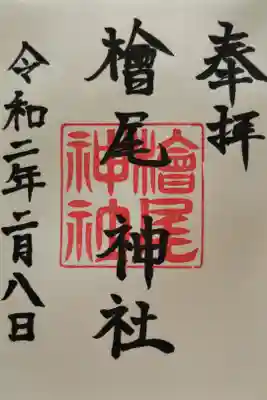 奉拝
檜尾神社
令和二年二月八日
檜尾
神社